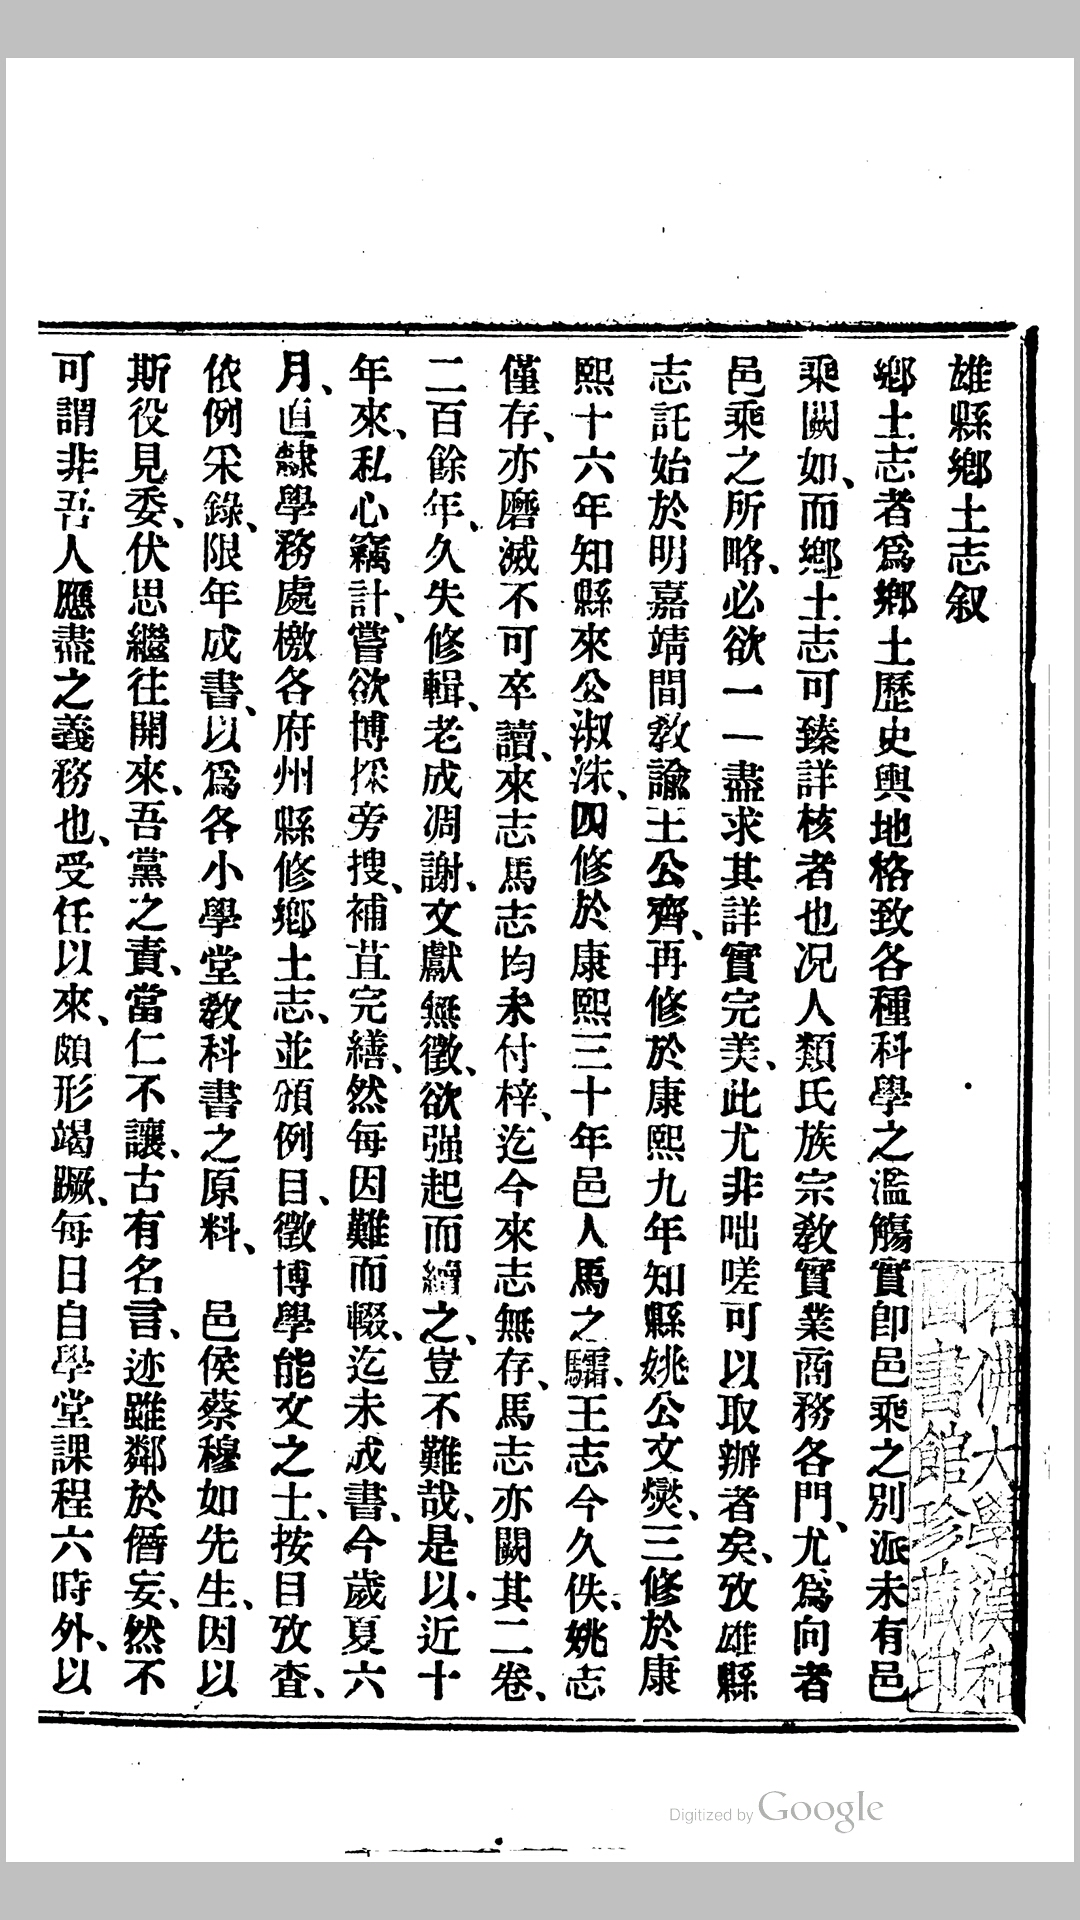 雄縣鄉土志叙
鄉土志者爲鄉土歷史輿地格致各種科學之濫觴實卽邑乘之別派未有邑
乘闕如、而鄉土志可臻詳核者也况人類氏族宗敎實業商務各門、尤爲向者
邑乘之所略、必欲一一盡求其詳實完美、此尤非咄嗟可以取辦者矣、攷雄縣
志託始於明嘉靖間敎諭王公齊、再修於康熙九年知縣姚公文燮、三修於康
熙十六年知縣來公淑洙、四修於康熙三十年邑人馬之驌、王志今久佚、姚志
僅存、亦磨滅不可卒讀、來志馬志均未付梓、迄今來志無存、馬志亦闕其二卷、
二百餘年、久失修輯、老成凋謝、文獻無徵、欲强起而續之、豈不難哉、是以近十
年來、私心竊計、嘗欲博採旁搜、補苴完繕、然每因難而輟、迄未成書、今歲夏六
月、直隸學務處檄各府州縣修鄉土志、並頒例目、徵博學能文之士、按目攷査、
依例采錄、限年成書、以爲各小學堂敎科書之原料、 邑侯蔡穆如先生、因以
斯役見委、伏思繼往開來、吾黨之責、當仁不讓、古有名言、迹雖鄰於僭妄、然不
可謂非吾人應盡之義務也、受任以來、頗形竭蹶、每日自學堂課程六時外、以
哈佛大學漢和
圖書館珍藏印
Digitized by Google